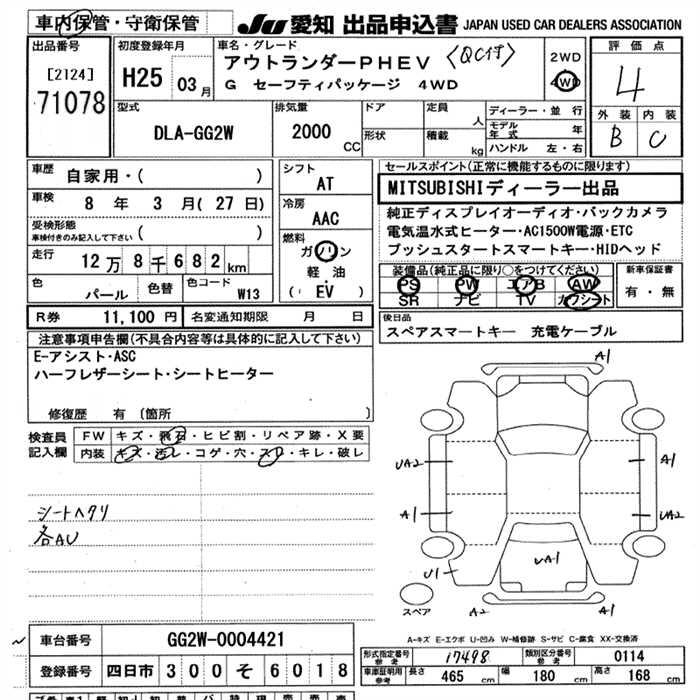 車内保管・守衛保管
JU 愛知 出品申込書 JAPAN USED CAR DEALERS ASSOCIATION
出品番号
[2124]
71078
初度登録年月
H25 03月
車名・グレード
アウトランダーPHEV 〈QC付〉
G セーフティパッケージ 4WD
2WD
4WD
評価点
4
外装 内装
B C
型式
DLA-GG2W
排気量
2000 CC
ドア
形状
定員 人
積載 kg
ディーラー・並行
モデル年式 年
ハンドル 左・右
車歴 自家用・( )
車検 8年 3月(27日)
受検形態
車検付きのみ記入して下さい ( )
走行 12万8千682km
色 パール 色替 色コード W13
シフト
AT
冷房
AAC
燃料
ガソリン
軽油
( EV )
セールスポイント(正常に機能するものに限ります)
MITSUBISHIディーラー出品
純正ディスプレイオーディオ・バックカメラ
電気温水式ヒーター・AC1500W電源・ETC
プッシュスタートスマートキー・HIDヘッド
装備品(純正品に限り○をつけてください)
PS PW エアB AW
SR ナビ TV カワシート
新車保証書
有・無
R券 11,100円 名変通知期限 月 日
後日品
スペアスマートキー 充電ケーブル
注意事項申告欄(不具合内容等は具体的に記入して下さい)
E-アシスト・ASC
ハーフレザーシート・シートヒーター
修復歴 有 (箇所 )
検査員記入欄
FW キズ・飛石・ヒビ割・リペア跡・X要
内装 キズ・汚レ・コゲ・穴・スレ・キレ・破レ
シートヘタリ
各AU
A1
UA2
A1
U1
A1
UA2
UA1
A2
A1
スペア
A-キズ E-エクボ U-凹み W-補修跡 S-サビ C-腐食 XX-交換済
車台番号 GG2W-0004421
登録番号 四日市 300 そ 6018
型式指定番号
参考
17498
類別区分番号
参考
0114
車庫証明用
参考
長さ 465 cm 幅 180 cm 高さ 168 cm